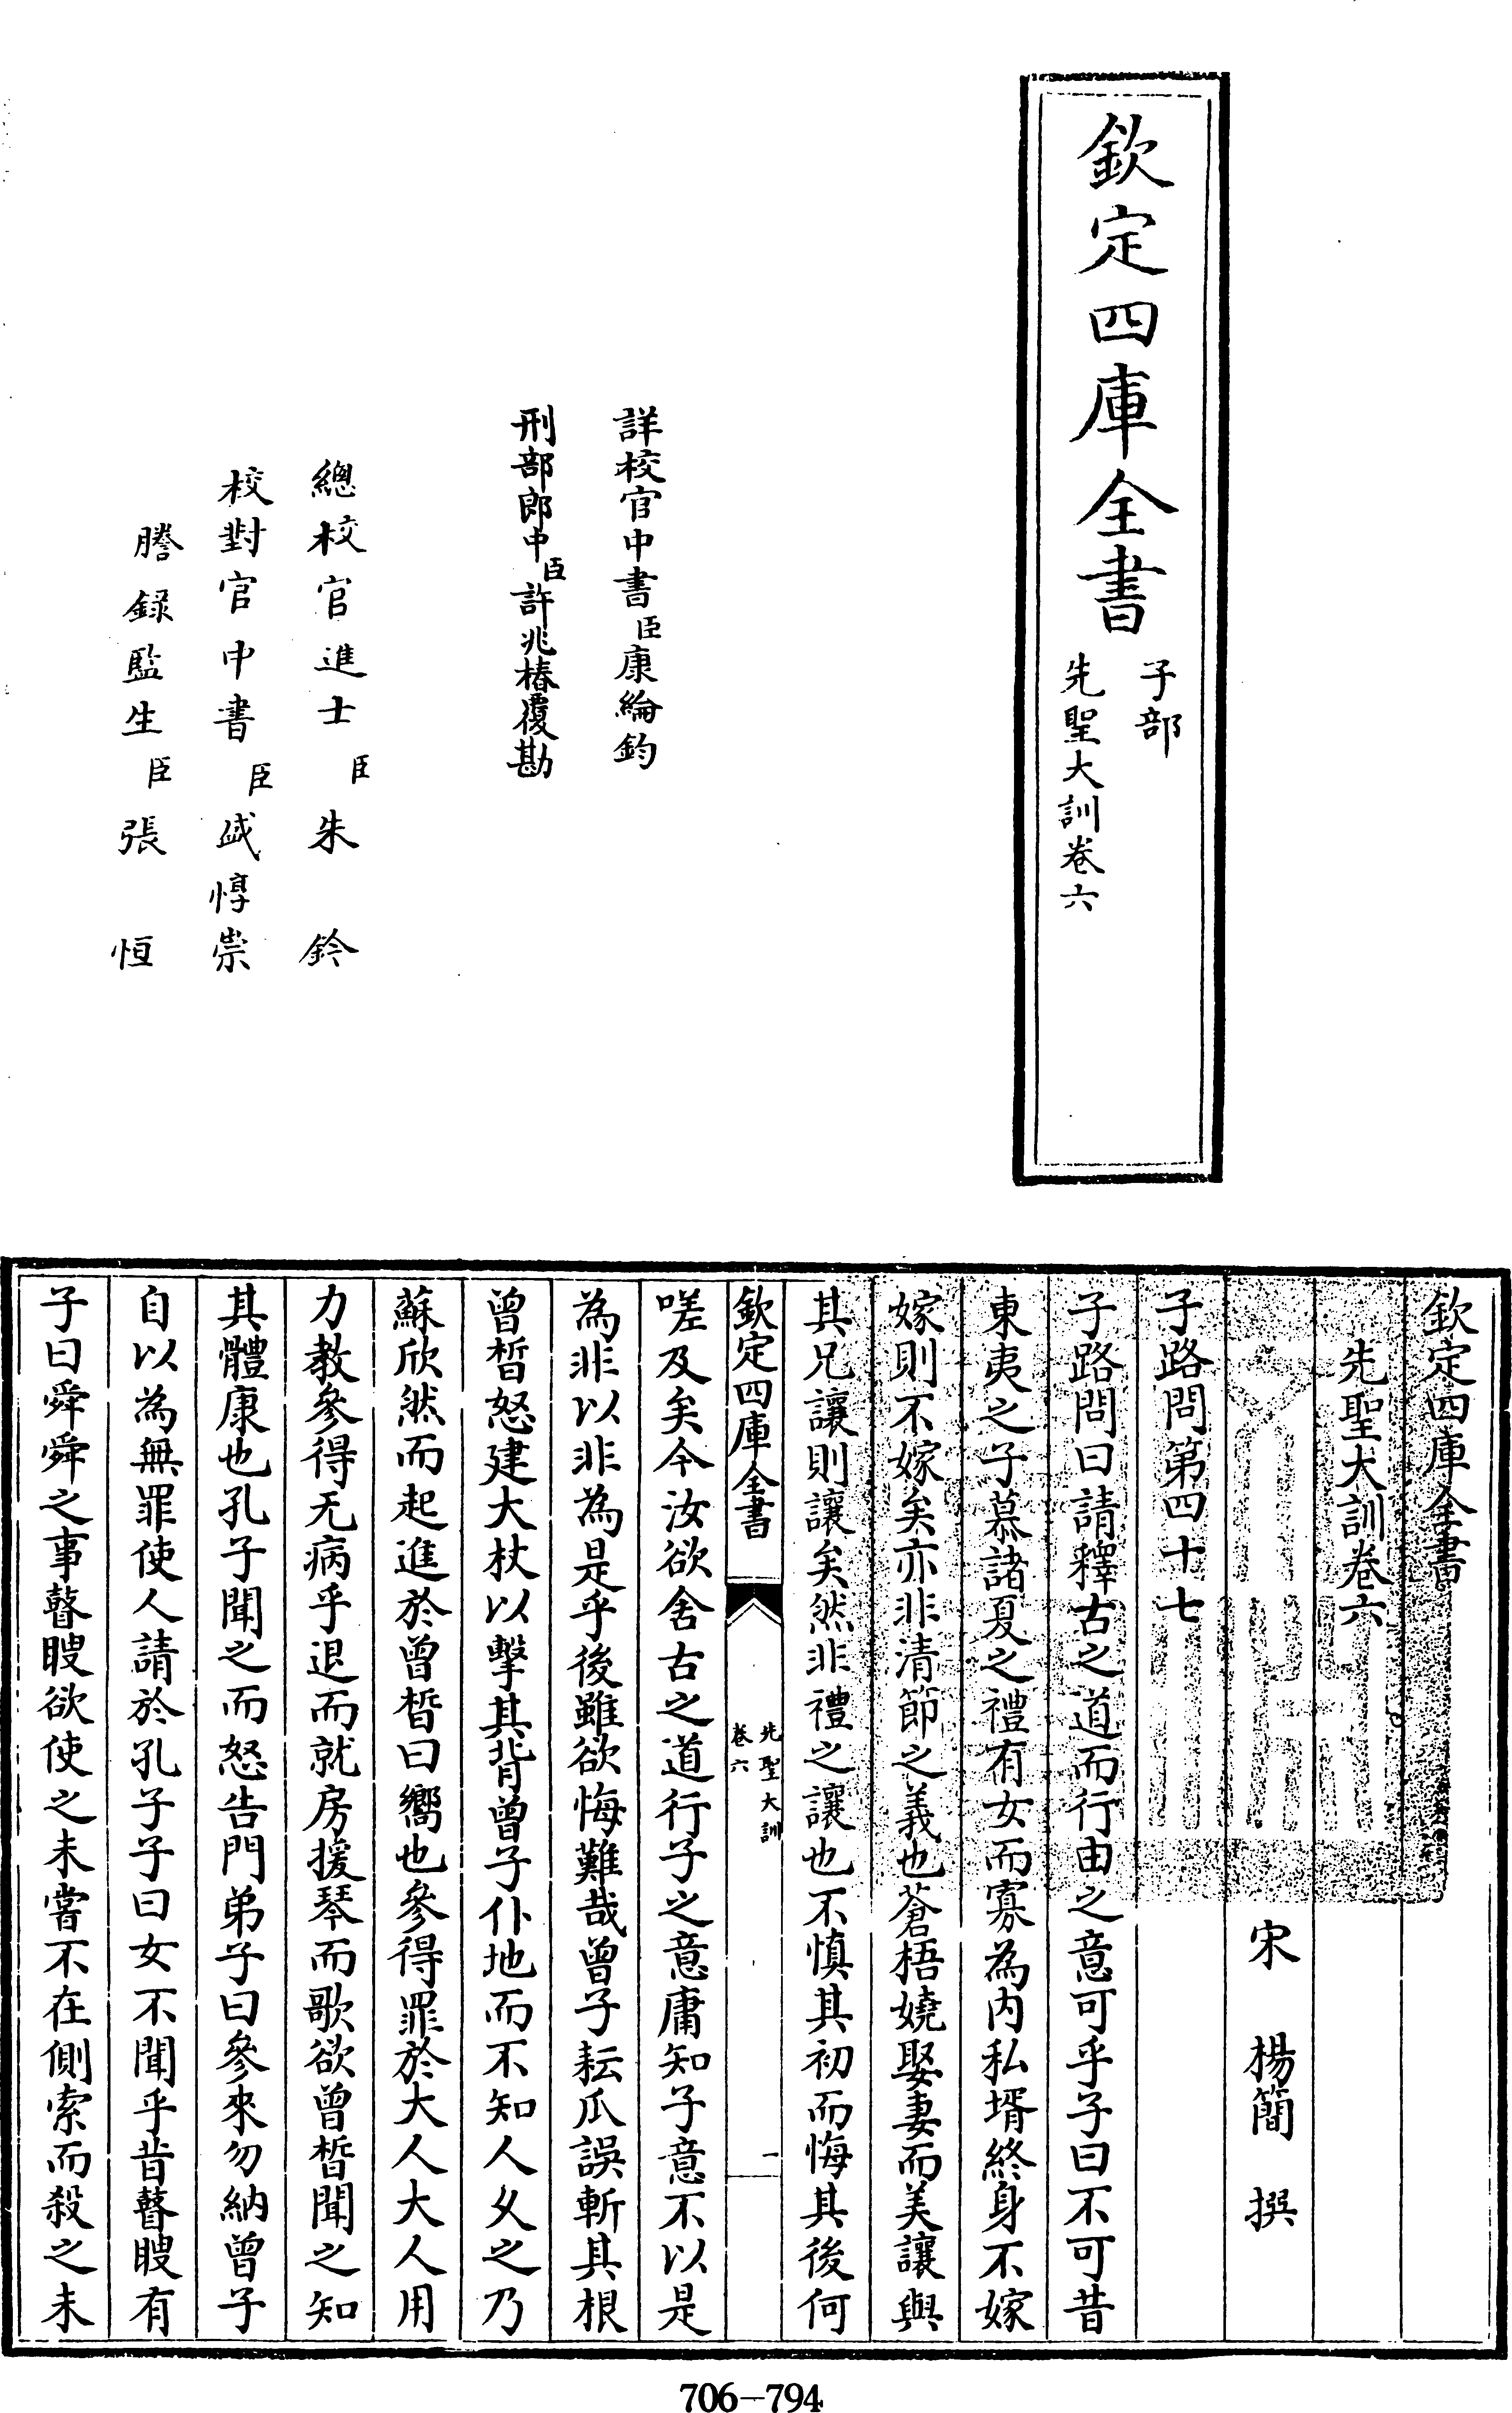 欽定四庫全書
子部
先聖大訓卷六
詳校官中書臣康綸鈞
刑部郎中臣許兆椿覆勘
總校官進士臣朱鈐
校對官中書臣盛惇崇
謄錄監生臣張恒
欽定四庫全書
先聖大訓卷六
宋 楊簡 撰
子路問第四十七
子路問曰請釋古之道而行由之意可乎子曰不可昔
東夷之子慕諸夏之禮有女而寡為內私壻終身不嫁
嫁則不嫁矣亦非清節之義也蒼梧嬈娶妻而美讓與
其兄讓則讓矣然非禮之讓也不慎其初而悔其後何
欽定四庫全書
先聖大訓
卷六
一
嗟及矣今汝欲舍古之道行子之意庸知子意不以是
為非以非為是乎後雖欲悔難哉曾子耘瓜誤斬其根
曾晳怒建大杖以擊其背曾子仆地而不知人乆之乃
蘇欣然而起進於曾晳曰嚮也參得罪於大人大人用
力教參得无病乎退而就房援琴而歌欲曾晳聞之知
其體康也孔子聞之而怒告門弟子曰參來勿納曾子
自以為無罪使人請於孔子子曰女不聞乎昔瞽瞍有
子曰舜舜之事瞽瞍欲使之未嘗不在側索而殺之未
706-794